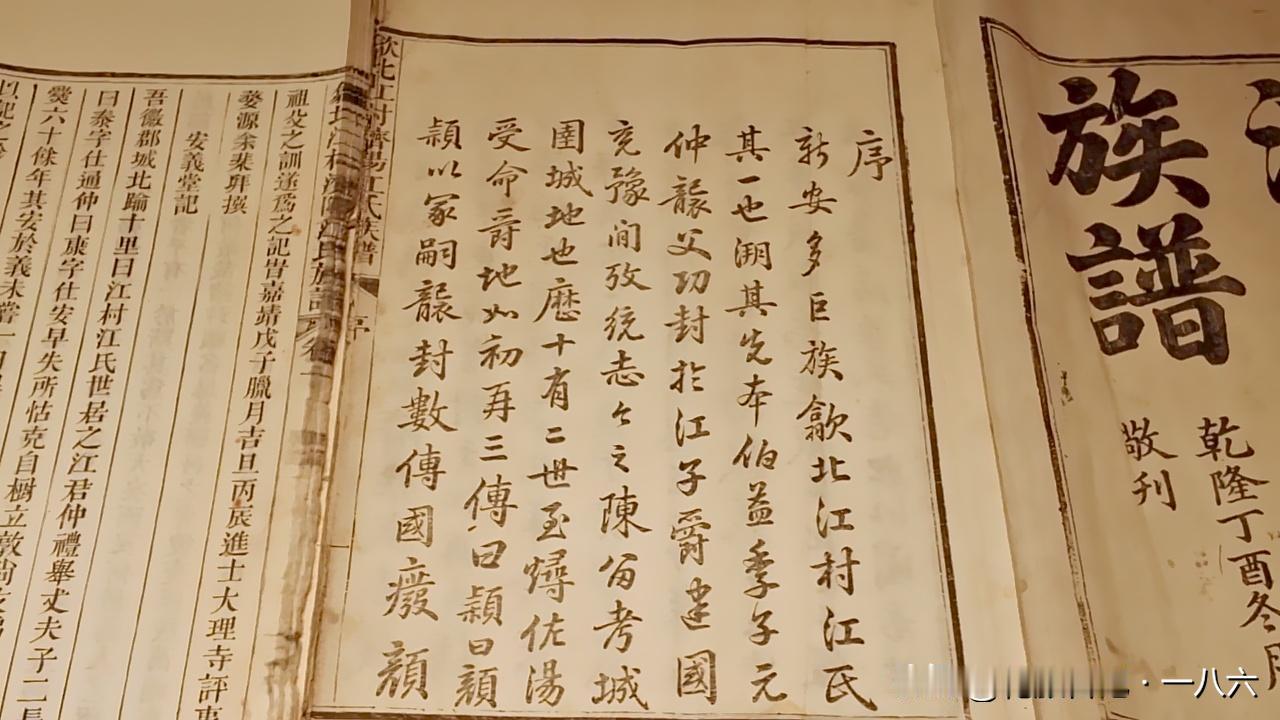 族譜
乾隆丁酉冬月
敬刊
序
新安多巨族歙北江村江氏
其一也溯其先本伯益季子元
仲襲父功封於江子爵建國
兖豫间攷統志々之陳留考城
圉城地也歷十有二世至燖佐湯
受命爵地如初再三傳曰穎曰顏
穎以冢嗣襲封數傳國廢顏
歙北江村濟陽江氏族譜
序
祖父之訓遂爲之記旹嘉靖戊子臘月吉旦丙辰進士大理寺評事
婺源余棐拜撰
安義堂記
吾徽郡城北踰十里曰江村江氏世居之江君仲禮舉丈夫子二長
曰泰字仕通仲曰康字仕安早失所怙克自樹立敦尚
爨六十餘年其安於義未嘗一
一八六